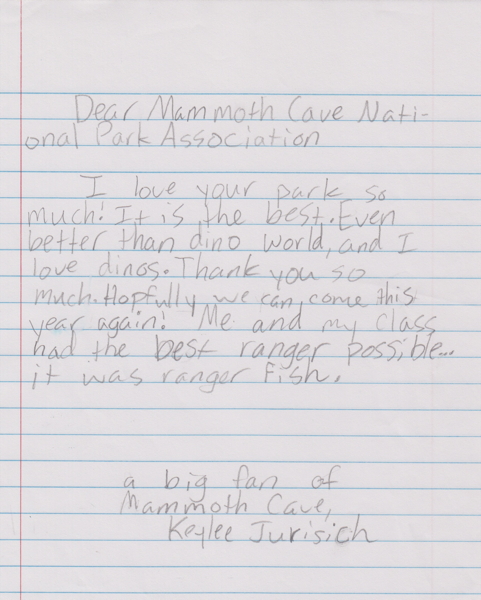 Dear Mammoth Cave Nati-
onal Park Association
I love your park so
much! It is the best. Even
better than dino world, and I
love dinos. Thank you so
much. Hopfully we can come this
year again! Me and my class
had the best ranger possible...
it was ranger Fish.
a big fan of
Mammoth Cave,
Keylee Jurisich